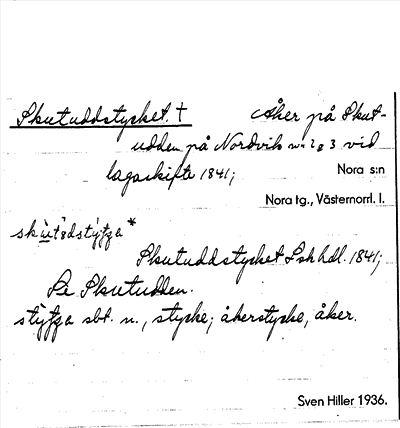 Skutuddstycket. †
Åker på Skut-
udden på Nordvik nr 2 o 3 vid
lagaskifte 1841;
Nora s:n
Nora tg., Västernorrl. l.
Skutuddstycket Lskhdl. 1841;
Se Skutudden.
sbt. n., stycke; åkerstycke, åker.
Sven Hiller 1936.